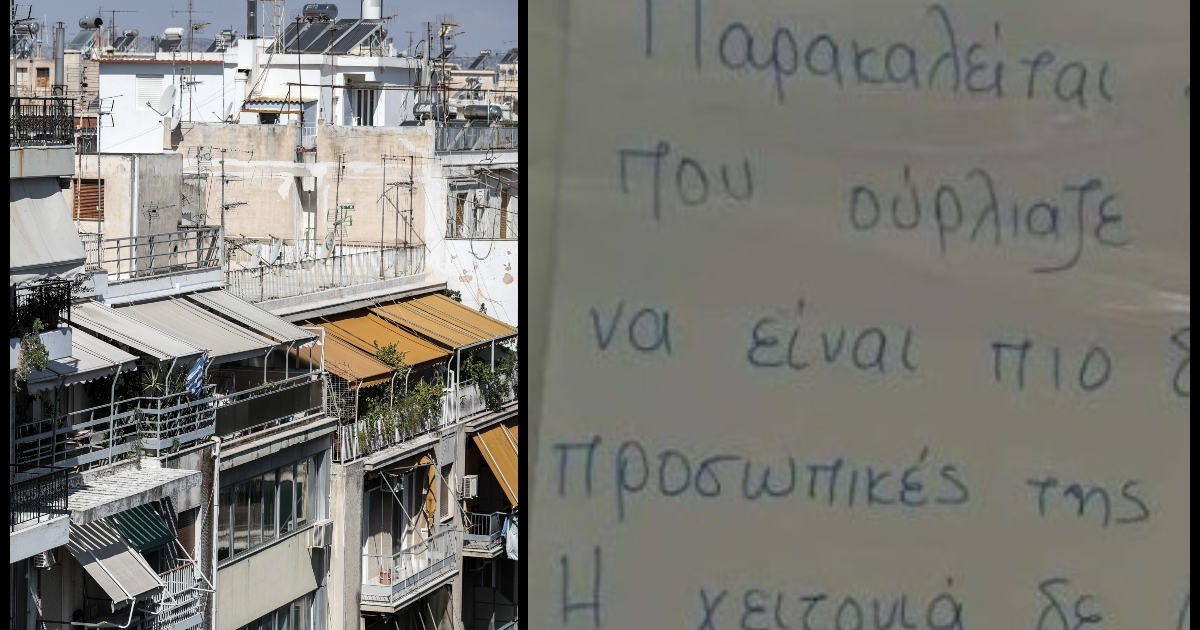 Παρακαλείται
που ούρλιαζε
να είναι πιο
προσωπικές της
Η γειτονιά δε